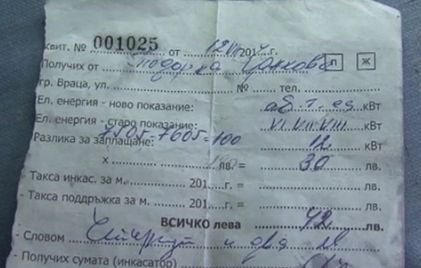 Квит. № 001025 от 12 VII 2014 г.
Получих от Тодорка Цонкова П Ж
гр. Враца, ул. № тел.
Ел. енергия - ново показание: кВт
Ел. енергия - старо показание: VI VII VIII кВт
Разлика за заплащане: 12 кВт
х лв. = 30 лв.
Такса инкас. за м. 201 г. = лв.
- Такса поддръжка за м. 201 г. = лв.
ВСИЧКО лева 42 лв.
- Словом и два лв
- Получих сумата (инкасатор)